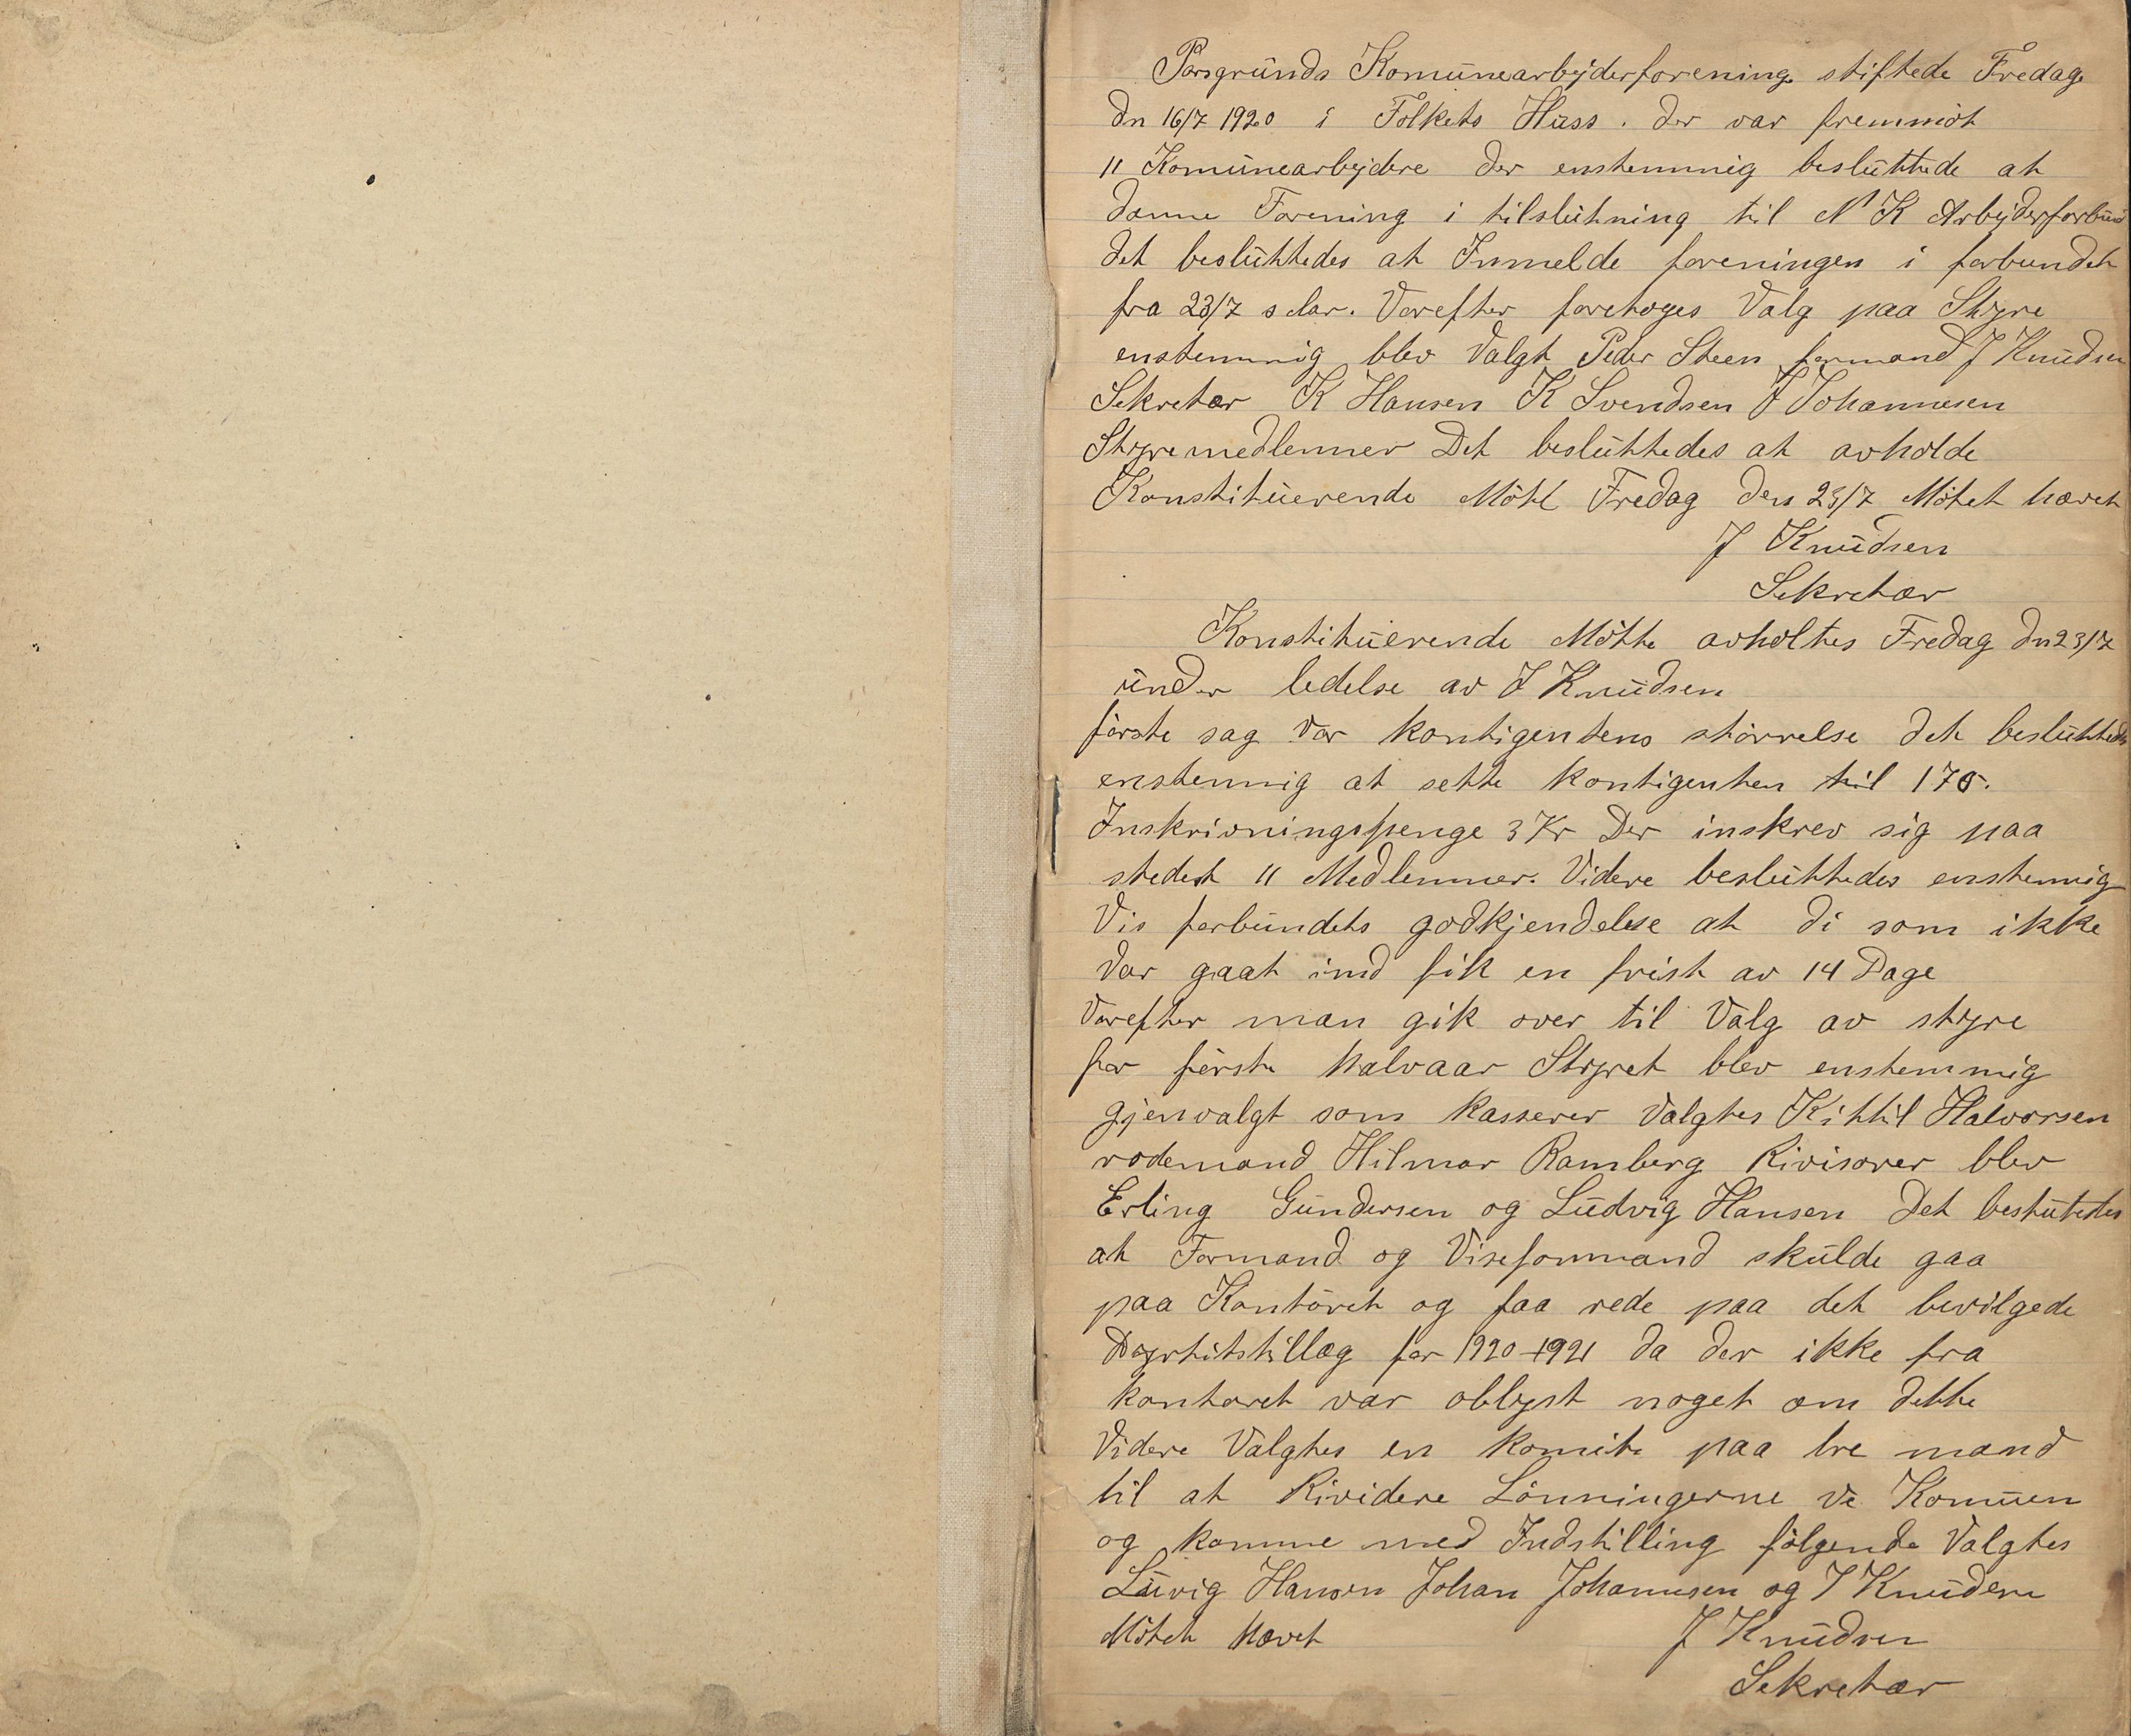 Porsgrunds Komunearbejderforening stiftede Fredag
dn 16/7 1920 i Folkets Huss. der var fremmöt
11 Komunearbejdere der enstemmig besluttede at
danne Forening i tilslutning til N K Arbejderforbund
det besluttedes at Inmelde foreningen i forbundet
fra 23/7 s. Varefter foretoges Valg paa Styre
enstemmig blev Valgt Peder Steen formand J Knudsen
Sekretær K Hansen K Svendsen J Johannesen
Styremedlemer Det besluttedes at avholde
Konstituerende Möte Fredag den 23/7 Mötet hævet
J Knudsen
Sekretær
Konstituerende Mötte avholtes Fredag dn 23/7
under ledelse av J Knudsen
förste sag var kontigentens störrelse det besluttedes
enstemig at sette kontigenten til 175.
Inskrivningspenge 3 Kr Der inskrev sig paa
stedet 11 Medlemmer. Videre besluttedes enstemig
Vis forbundets godkjendelse at di som ikke
var gaat ind fik en frist av 14 Dage
Varefter man gik over til Valg av styre
for förste halvaar Styret blev enstemmig
gjenvalgt som kasserer valgtes Kittil Halvorsen
rodemand Hilmar Ramberg Rivisorer blev
Erling Gundersen og Ludvig Hansen Det beslutedes
at Formand og Viseformand skulde gaa
paa Kontoret og faa rede paa det bevilgede
Dyrtitstillæg for 1920-1921 da der ikke fra
kontoret var oblyst noget om dette
Videre Valgtes en komite paa tre mand
til at Rividere Lönningerne ve Komuen
og komme med Indstilling fölgende Valgtes
Luvig Hansen Johan Johannesen og J Knudsen
Mötet Hævet
J Knudsen
Sekretær